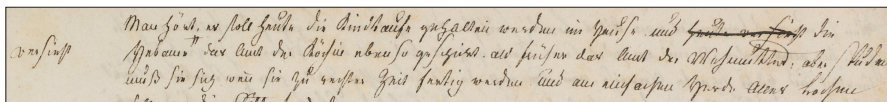 versieht
Man hört, es soll heute die Kindstaufe gehalten werden im Hause und heute versieht die
Hebame das Amt der Köchin ebenso geschickt als früher das Amt der Wehmutter; aber
muß sie sich wen sie zu rechter Zeit fertig werden und am einfachen Herde alles kochen